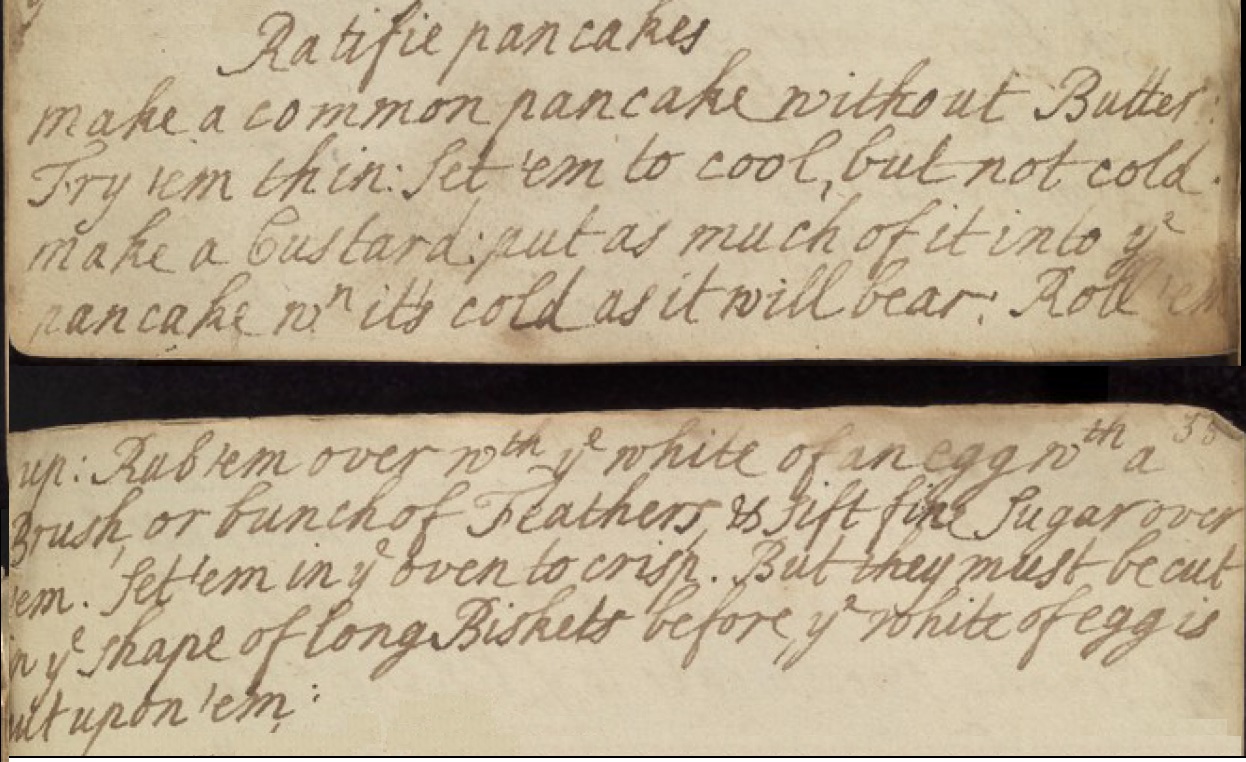 Ratifie pancakes
make a common pancake without Butter:
Fry 'em thin: Set 'em to cool, but not cold.
make a Custard: put as much of it into yᵉ
pancake wⁿ it's cold as it will bear: Roll 'em
up: Rub 'em over wᵗʰ yᵉ white of an egg wᵗʰ a
Brush, or bunch of Feathers, & Sift fine Sugar over
'em. Set 'em in yᵉ oven to crisp. But they must be cut
in yᵉ shape of long Biskets before, yᵉ white of egg is
put upon 'em: